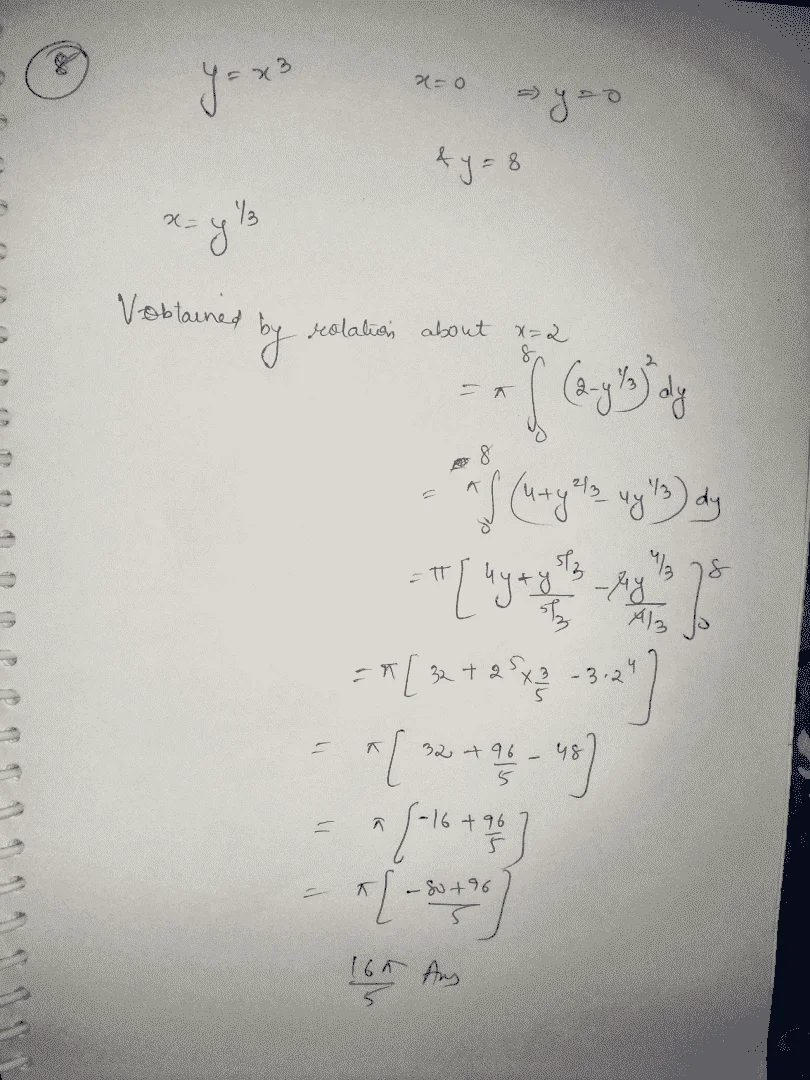 8
y = x³   x=0 ⇒ y=0
& y = 8
x = y^1/3
V obtained by rotation about x=2
= π ∫₀⁸ (2-y^1/3)² dy
= π ∫₀⁸ (4+y^2/3 - 4y^1/3) dy
= π [ 4y + y^5/3 / 5/3 - 4y^4/3 / 4/3 ]₀⁸
= π [ 32 + 2⁵ × 3/5 - 3·2⁴ ]
= π [ 32 + 96/5 - 48 ]
= π [ -16 + 96/5 ]
= π [ -80+96 / 5 ]
16π/5 Ans